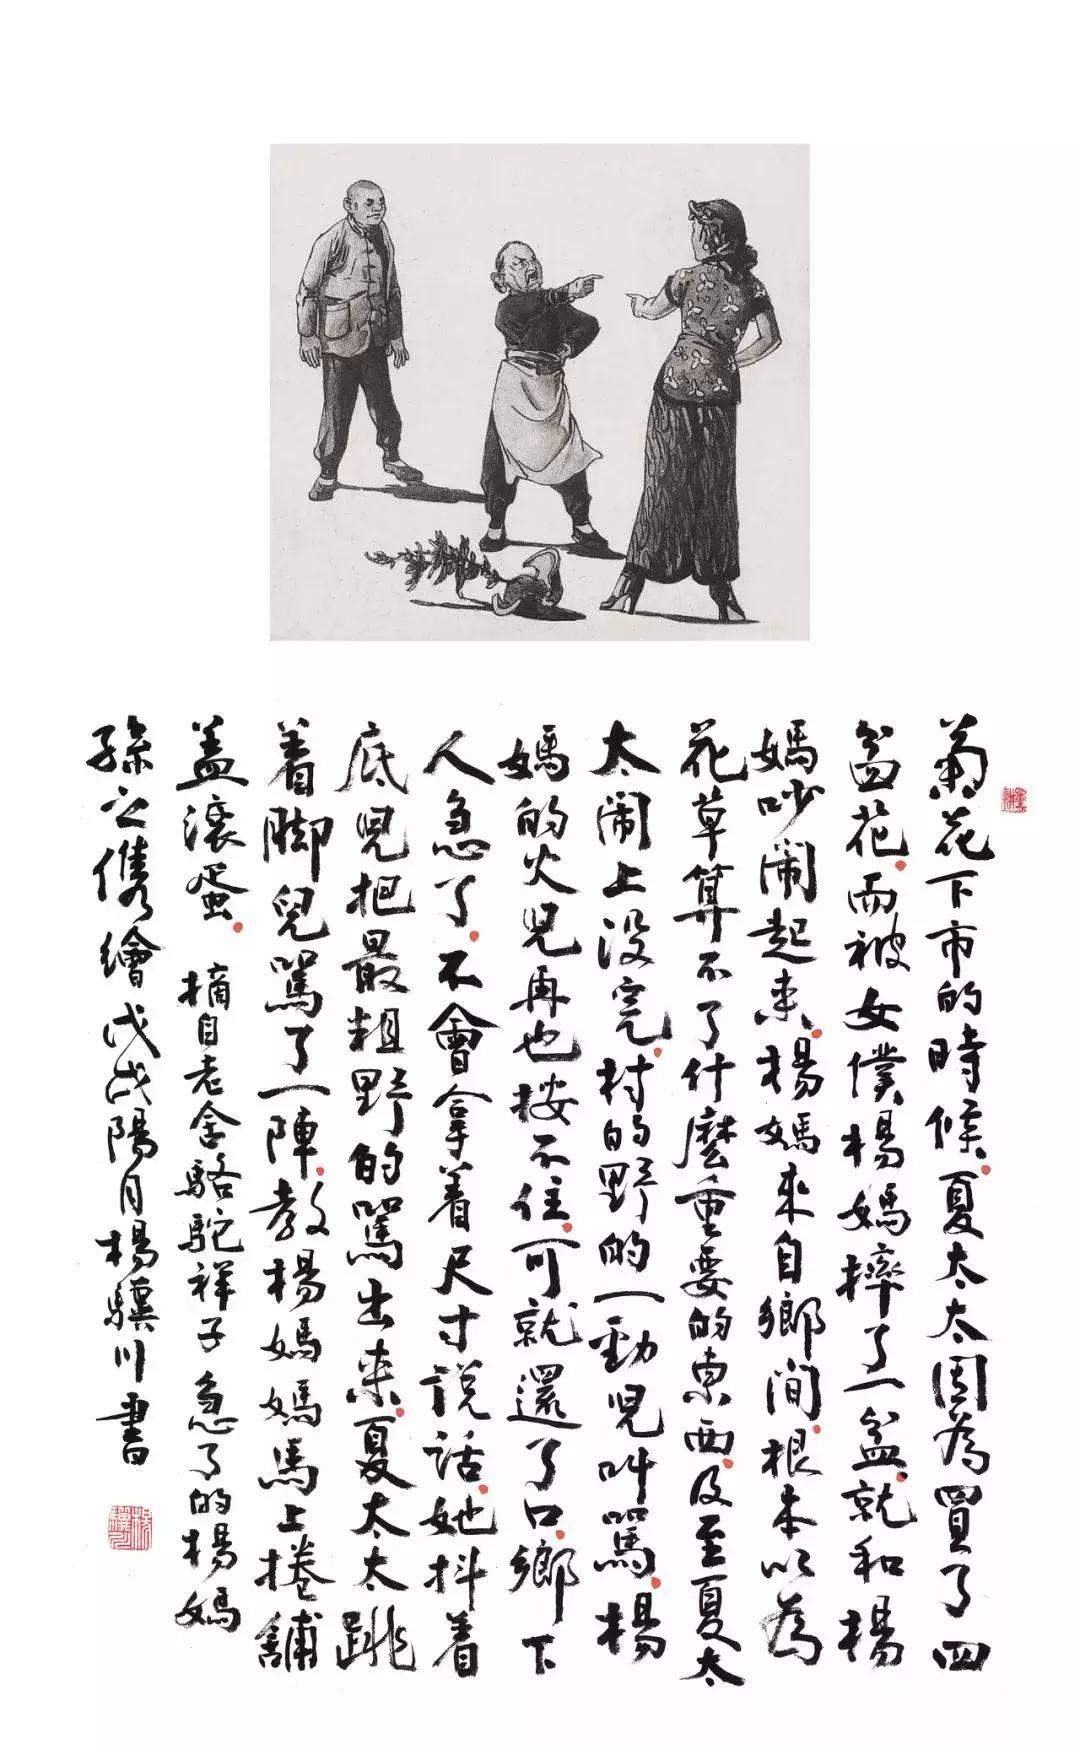 菊花下市的時候。夏太太因為買了四
盆花。而被女僕楊媽摔了一盆。就和楊
媽吵鬧起来。楊媽来自鄉間。根本以為
花草算不了什麼重要的東西。及至夏太
太鬧上没完。村的野的一勁兒叫罵。楊
媽的火兒再也按不住。可就還了口。鄉下
人急了。不會拿着尺寸説話。她抖着
底兒把最粗野的罵出来。夏太太跳
着脚兒罵了一陣。教楊媽馬上捲鋪
盖滚蛋。 摘自老舍駱駝祥子急了的楊媽
孫之儁繪戊戌陽月楊驥川書